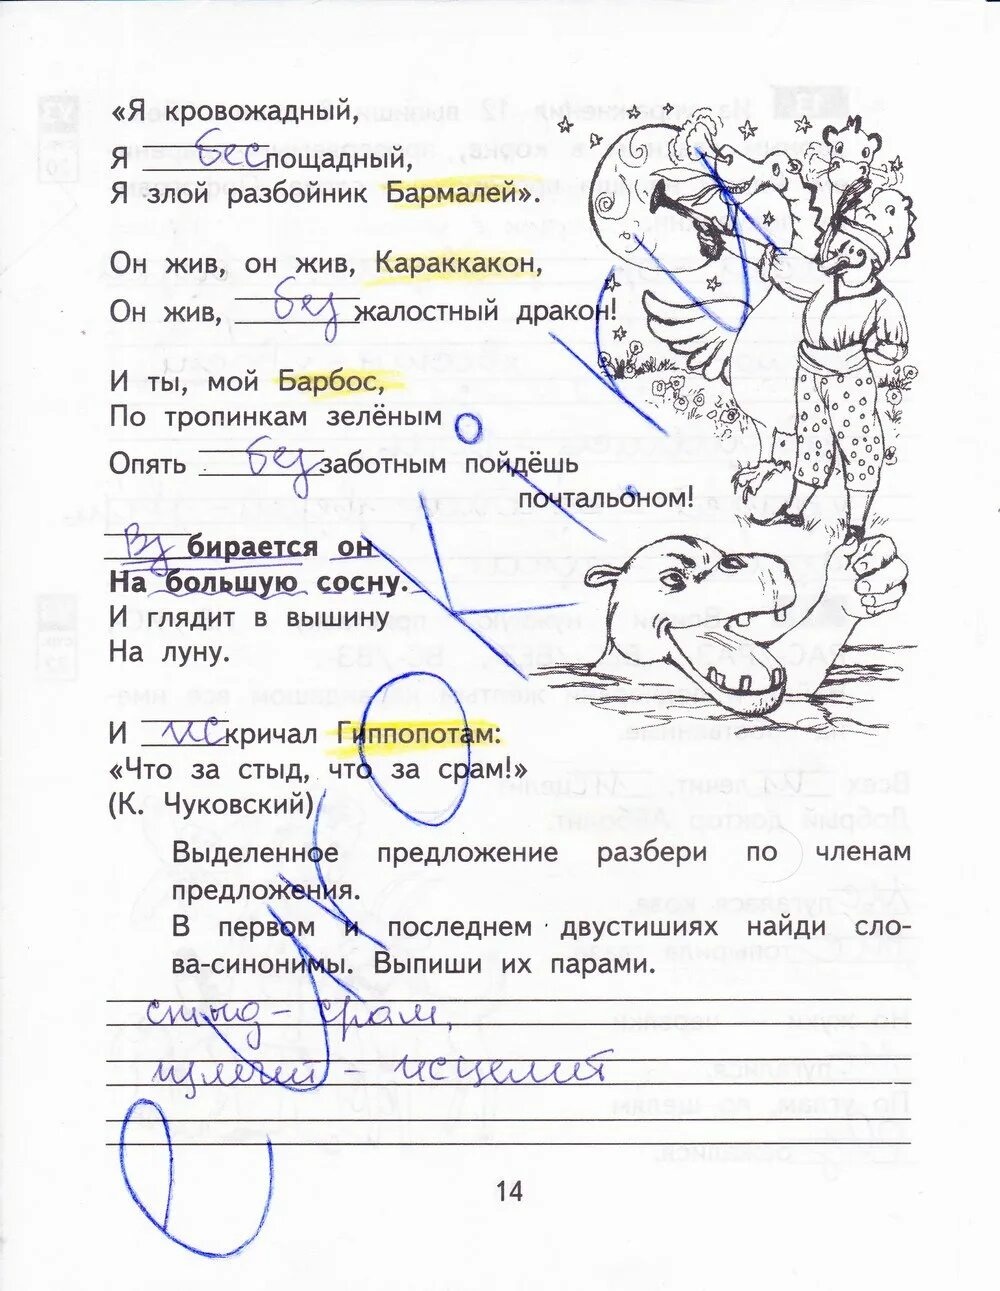 «Я кровожадный,
Я беспощадный,
Я злой разбойник Бармалей».
Он жив, он жив, Караккакон,
Он жив, безжалостный дракон!
И ты, мой Барбос,
По тропинкам зелёным
Опять беззаботным пойдёшь
почтальоном!
Взбирается он
На большую сосну.
И глядит в вышину
На луну.
И искричал Гиппопотам:
«Что за стыд, что за срам!»
(К. Чуковский)
Выделенное предложение разбери по членам
предложения.
В первом и последнем двустишиях найди сло-
ва-синонимы. Выпиши их парами.
стыд – срам,
излечит – исцелит
14